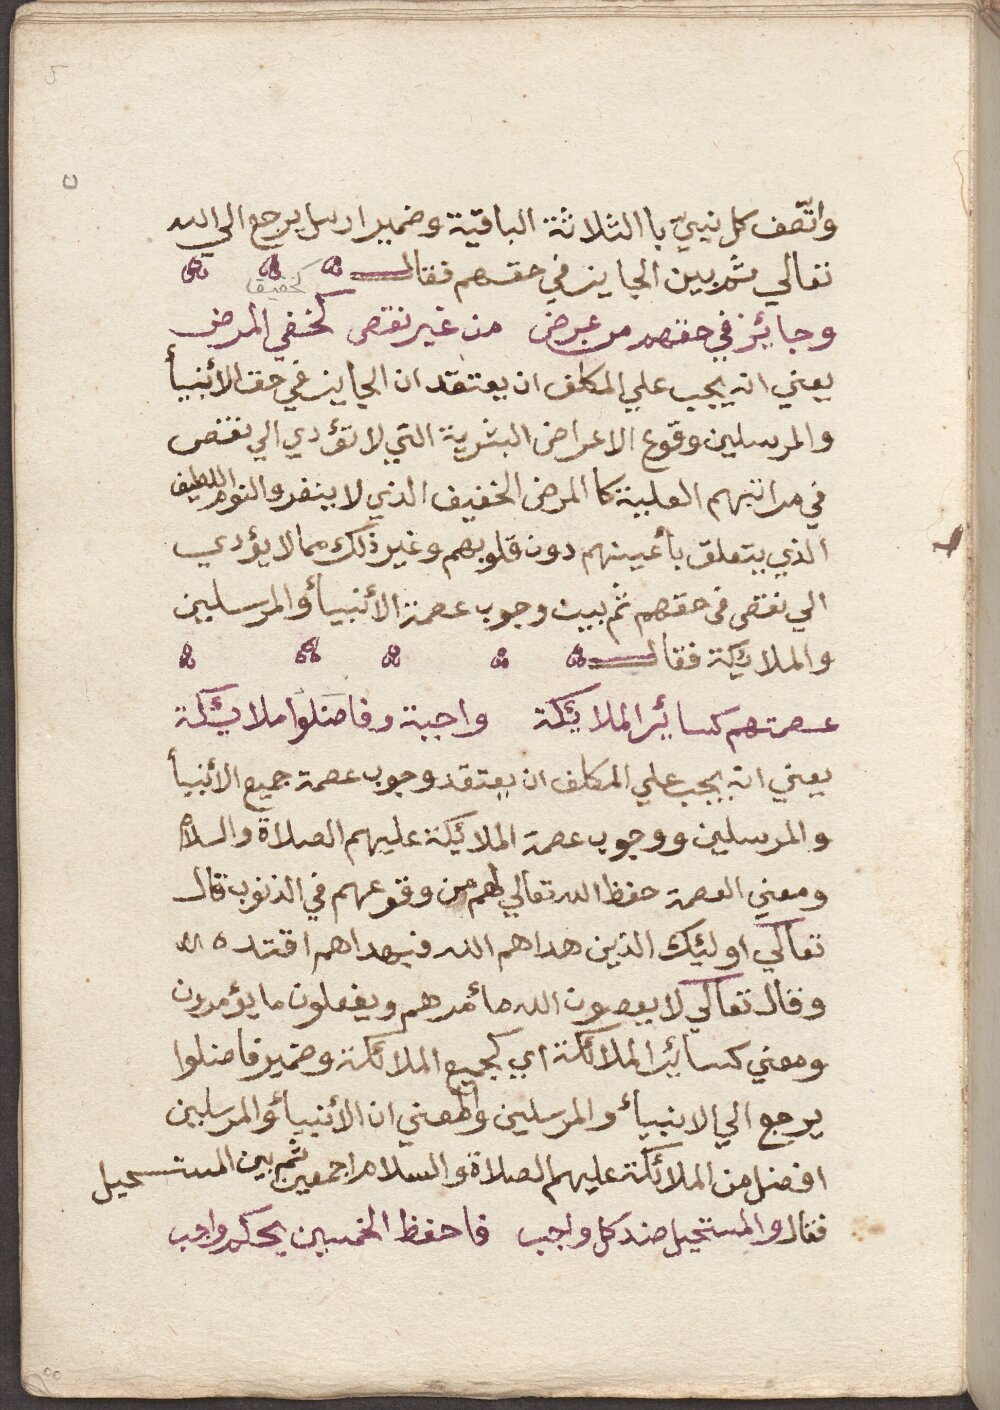 واتّصف كل نبيّ باالثلاثة الباقية وضمير ارسل يرجع الي الله
تعالي ثم بين الجايز في حقهم فقالـــ
كخفيف
وجائز في حقهم من عرض من غير نقص كخفي المرض
يعني انه يجب علي المكلف ان يعتقد ان الجايز في حق الأنبيأ
والمرسلين وقوع الاعراض البشرية التي لا تؤدي الي نقص
في مراتبهم العلية كاالمرض الخفيف الذي لا ينفر والنوم اللطيف
الذي يتعلق بأعينهم دون قلوبهم وغير ذلك مما لا يؤدي
الي نقص في حقهم ثم بين وجوب عصمة الأنبيأ والمرسلين
والملائكة فقالـــ
عصمتهم كسائر الملائكة واجبة وفاضلوا ملائكة
يعني انه يجب علي المكلف ان يعتقد وجوب عصمة جميع الأنبيأ
والمرسلين ووجوب عصمة الملائكة عليهم الصلاة والسلام
ومعني العصمة حفظ الله تعالي لهم من وقوعهم في الذنوب قال
تعالي اولئك الذين هداهم الله فبهداهم اقتده
وقال تعالي لا يعصون الله مأمرهم ويفعلون ما يؤمرون
ومعني كسائر الملائكة اي كجميع الملائكة وضمير فاضلوا
يرجع الي الانبيأ والمرسلين والمعني ان الأنبيأ والمرسلين
افضل من الملائكة عليهم الصلاة والسلام اجمعين ثم بين المستحيل
فقال والمستحيل ضد كل واجب فاحفظ الخمسين بحكم واجب